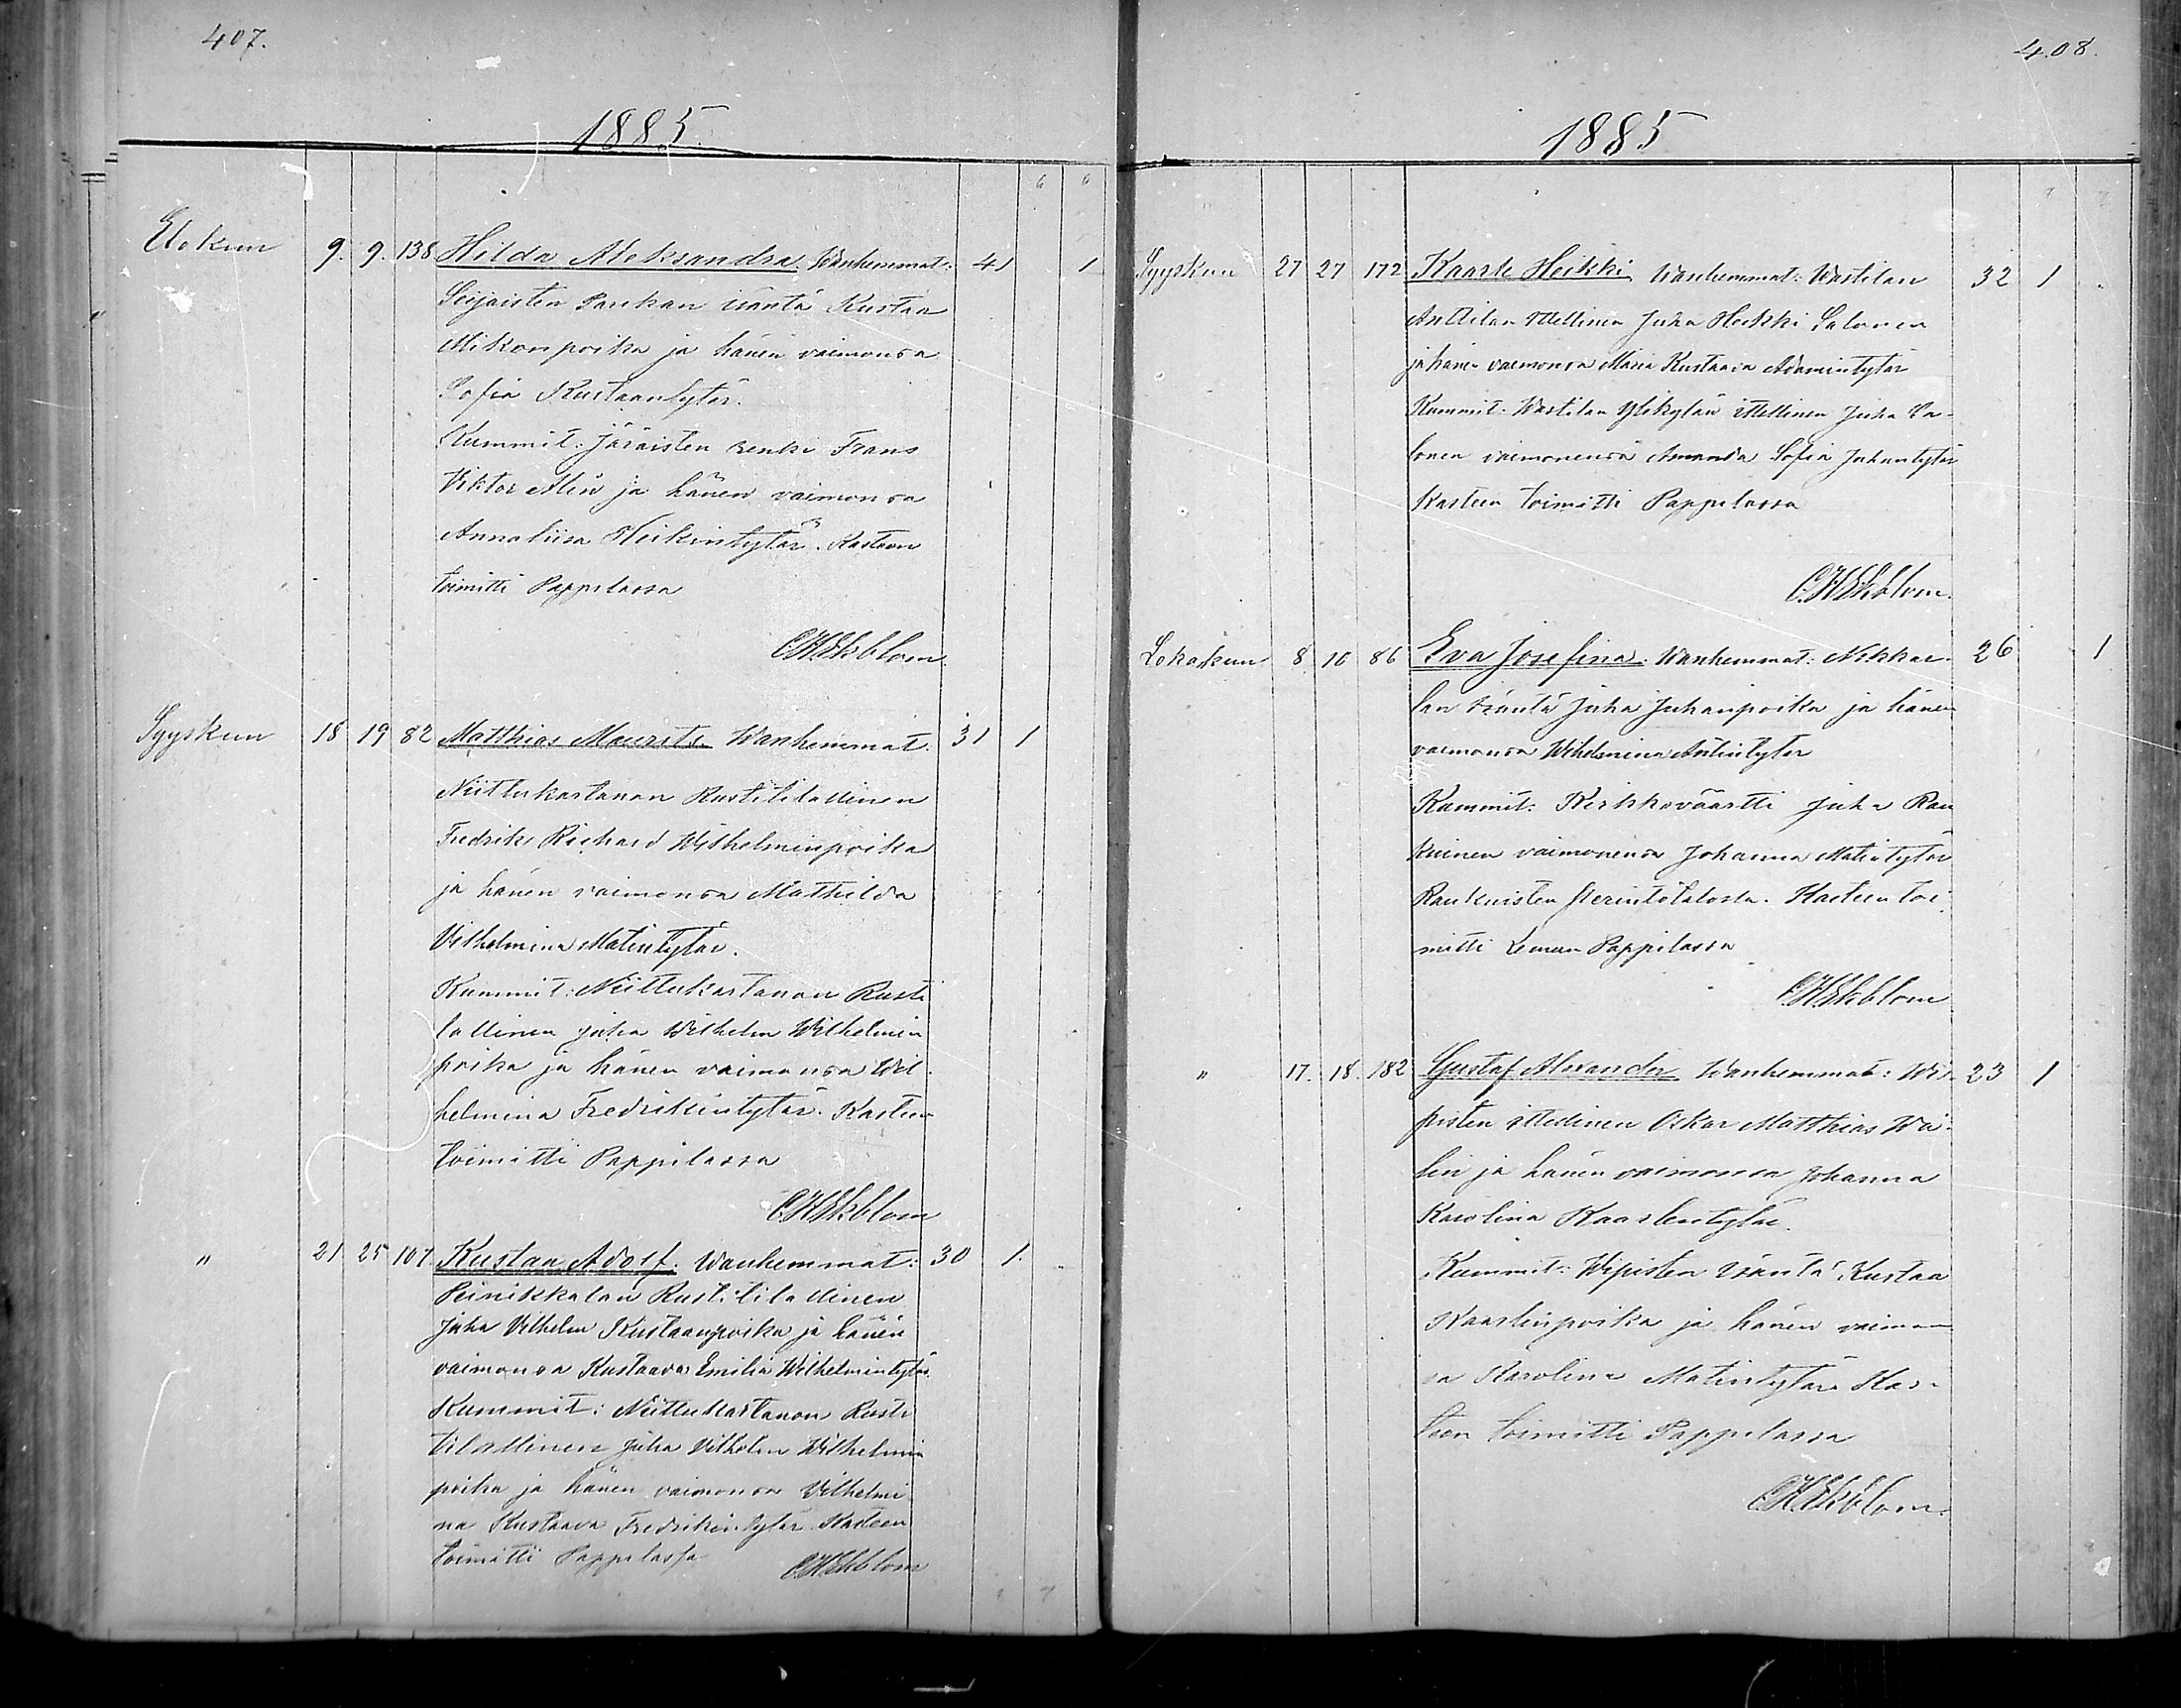 407.
1885.
6 6
Elokuu 9. 9. 138 Hilda Aleksandra. Wanhemmat: 41 1
Seijaisten Paukan isäntä Kustaa
Mikonpoika ja hänen vaimonsa
Sofia Kustaantytär.
Kummit: Järäisten renki Frans
Viktor Alin ja hänen vaimonsa
Annaliisa Heikintytär. Kasteen
toimitti Pappilassa
C.H.Ekblom.
Syyskuu 18 19 82 Matthias Maurits. Wanhemmat. 31 1
Niittukartanon Rustitilallinen
Fredrik Richard Wilhelminpoika
ja hänen vaimonsa Mathilda
Vilhelmina Matintytär.
Kummit: Niittukartanon Rusti
lallinen Juha Wilhelm Wilhelmin
poika ja hänen vaimonsa Wil-
helmina Fredrikintytär. Kasteen
toimitti Pappilassa
C.H.Ekblom
" 21 25 107 Kustaa Adolf. Wanhemmat: 30 1.
Peinikkalan Rustitilallinen
Juha Vilhelm Kustaanpoika ja hänen
vaimonsa Kustaava Emilia Wilhelmintytär.
Kummit: Niittukartanon Rusti
tilallinen Juha Vilhelm Wilhelmin
poika ja hänen vaimonsa Vilhelmi
na Kustaava Fredrikintytär. Kasteen
toimitti Pappilassa C.H.Ekblom
408.
1885
7 7
Syyskuu 27 27 172 Kaarle Heikki Wanhemmat: Wastilan 32 1
Anttilan Ittellinen Juha Heikki Salonen
ja hänen vaimonsa Maria Kustaava Adamintytär
Kummit: Wastilan Ylikylän ittellinen Juha Sa-
lonen vaimonensa Amanda Sofia Juhantytär
Kasteen toimitti Pappilassa
C.H.Ekblom.
Lokakuu 8 10 86 Eva Josefina. Wanhemmat: Nikkai- 26 1
lan isäntä Juha Juhanpoika ja hänen
vaimonsa Wilhelmina Antintytär
Kummit: Kirkkoväärtti Juha Rau
kuinen vaimonensa Johanna Matintytär
Raukuisten perintötalosta. Kasteen toi
mitti Lemun Pappilassa
C.H.Ekblom
" 17. 18. 182 Gustaf Alexander Wanhemmat: Wi- 23 1
pisten ittellinen Oskar Matthias Wa-
lin ja hänen vaimonsa Johanna
Karolina Kaarlentytär.
Kummit: Wipisten isäntä Kustaa
Kaarlinpoika ja hänen vaimon
sa Karolina Matintytär. Kas-
teen toimitti Pappilassa
C.H.Ekblom.